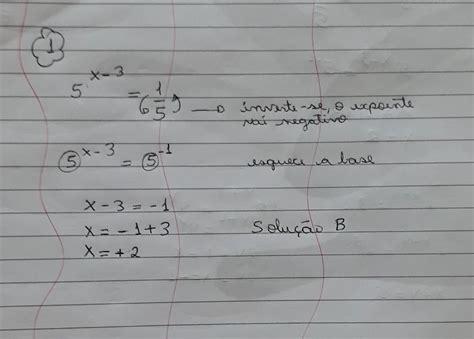 1
5^(x-3) = (1/5) → inverte-se, o expoente
sai negativo
5^(x-3) = 5^(-1) esquece a base
x - 3 = -1
x = -1 + 3 Solução B
x = + 2